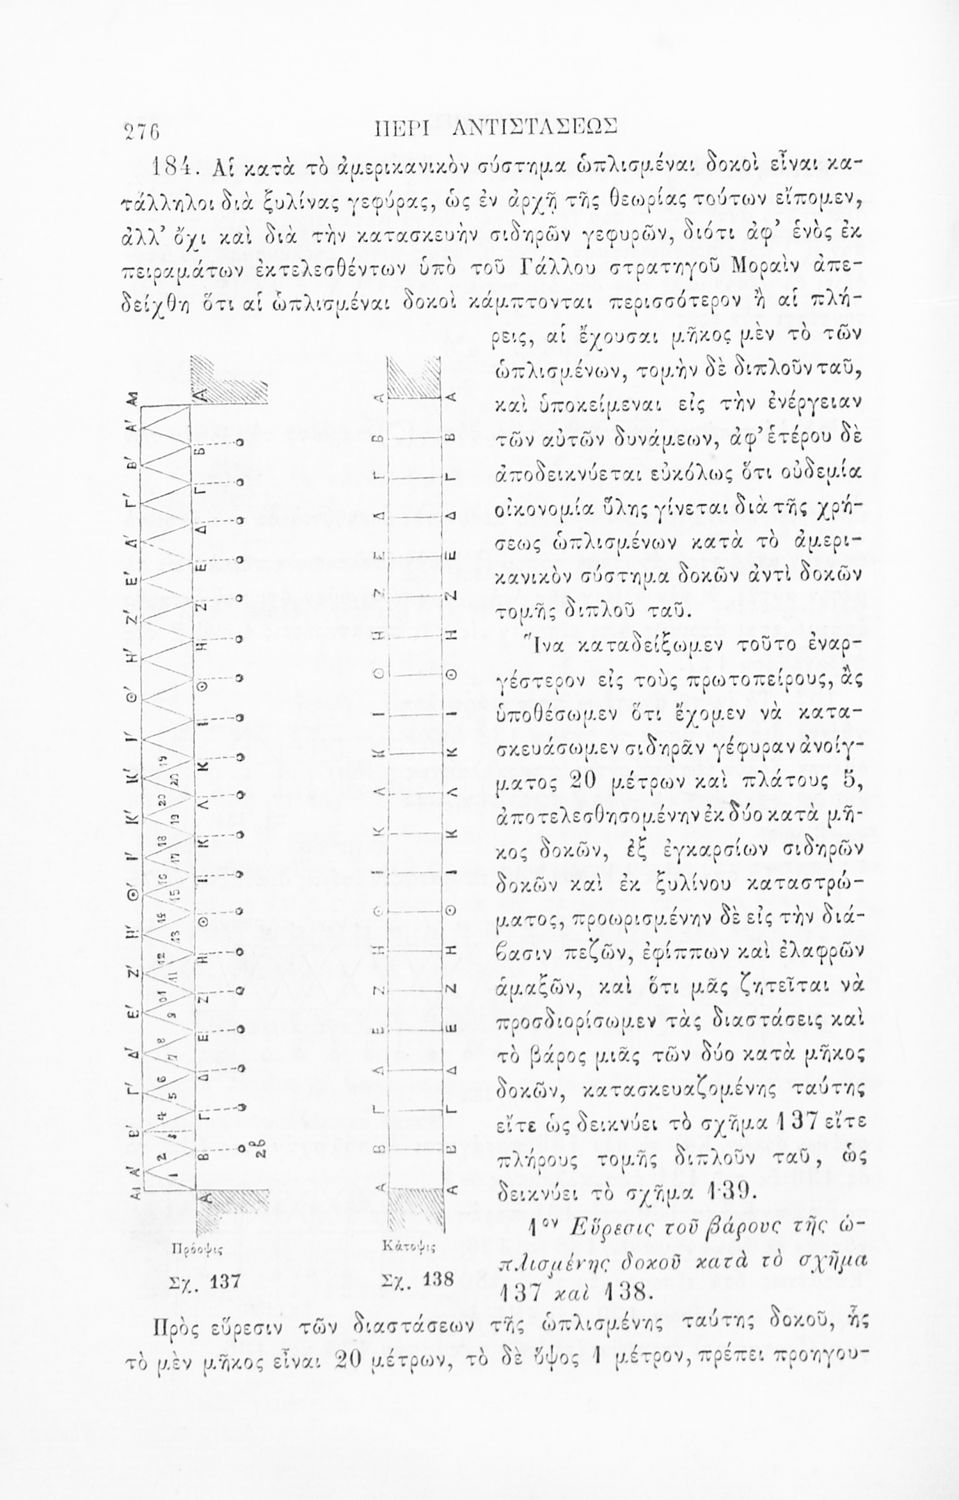 276
ΠΕΡΙ ΑΝΤΙΣΤΑΣΕΩΣ
184. Αἱ κατὰ τὸ ἀμερικανικὸν σύστημα ὡπλισμέναι δοκοὶ εἶναι κα-
τάλληλοι διὰ ξυλίνας γεφύρας, ὡς ἐν ἀρχῇ τῆς θεωρίας τούτων εἴπομεν,
ἀλλ' ὄχι καὶ διὰ τὴν κατασκευὴν σιδηρῶν γεφυρῶν, διότι ἀφ' ἑνὸς ἐκ
πειραμάτων ἐκτελεσθέντων ὑπὸ τοῦ Γάλλου στρατηγοῦ Μοραὶν ἀπε-
δείχθη ὅτι αἱ ὡπλισμέναι δοκοὶ κάμπτονται περισσότερον ἢ αἱ πλή-
ρεις, αἱ ἔχουσαι μῆκος μὲν τὸ τῶν
ὡπλισμένων, τομὴν δὲ διπλοῦν ταῦ,
καὶ ὑποκείμεναι εἰς τὴν ἐνέργειαν
τῶν αὐτῶν δυνάμεων, ἀφ' ἑτέρου δὲ
ἀποδεικνύεται εὐκόλως ὅτι οὐδεμία
οἰκονομία ὕλης γίνεται διὰ τῆς χρή-
σεως ὡπλισμένων κατὰ τὸ ἀμερι-
κανικὸν σύστημα δοκῶν ἀντὶ δοκῶν
τομῆς διπλοῦ ταῦ.
Ἵνα καταδείξωμεν τοῦτο ἐναρ-
γέστερον εἰς τοὺς πρωτοπείρους, ἂς
ὑποθέσωμεν ὅτι ἔχομεν νὰ κατα-
σκευάσωμεν σιδηρᾶν γέφυραν ἀνοίγ-
ματος 20 μέτρων καὶ πλάτους 5,
ἀποτελεσθησομένην ἐκ δύο κατὰ μῆ-
κος δοκῶν, ἐξ ἐγκαρσίων σιδηρῶν
δοκῶν καὶ ἐκ ξυλίνου καταστρώ-
ματος, προωρισμένην δὲ εἰς τὴν διά-
βασιν πεζῶν, ἐφίππων καὶ ἐλαφρῶν
ἁμαξῶν, καὶ ὅτι μᾶς ζητεῖται νὰ
προσδιορίσωμεν τὰς διαστάσεις καὶ
τὸ βάρος μιᾶς τῶν δύο κατὰ μῆκος
δοκῶν, κατασκευαζομένης ταύτης
εἴτε ὡς δεικνύει τὸ σχῆμα 137 εἴτε
πλήρους τομῆς διπλοῦν ταῦ, ὡς
δεικνύει τὸ σχῆμα 139.
1ον Εὕρεσις τοῦ βάρους τῆς ὡ-
πλισμένης δοκοῦ κατὰ τὸ σχῆμα
137 καὶ 138.
Πρόοψις
Κάτοψις
Σχ. 137
Σχ. 138
Πρὸς εὕρεσιν τῶν διαστάσεων τῆς ὡπλισμένης ταύτης δοκοῦ, ἧς
τὸ μὲν μῆκος εἶναι 20 μέτρων, τὸ δὲ ὕψος 1 μέτρον, πρέπει προηγου-